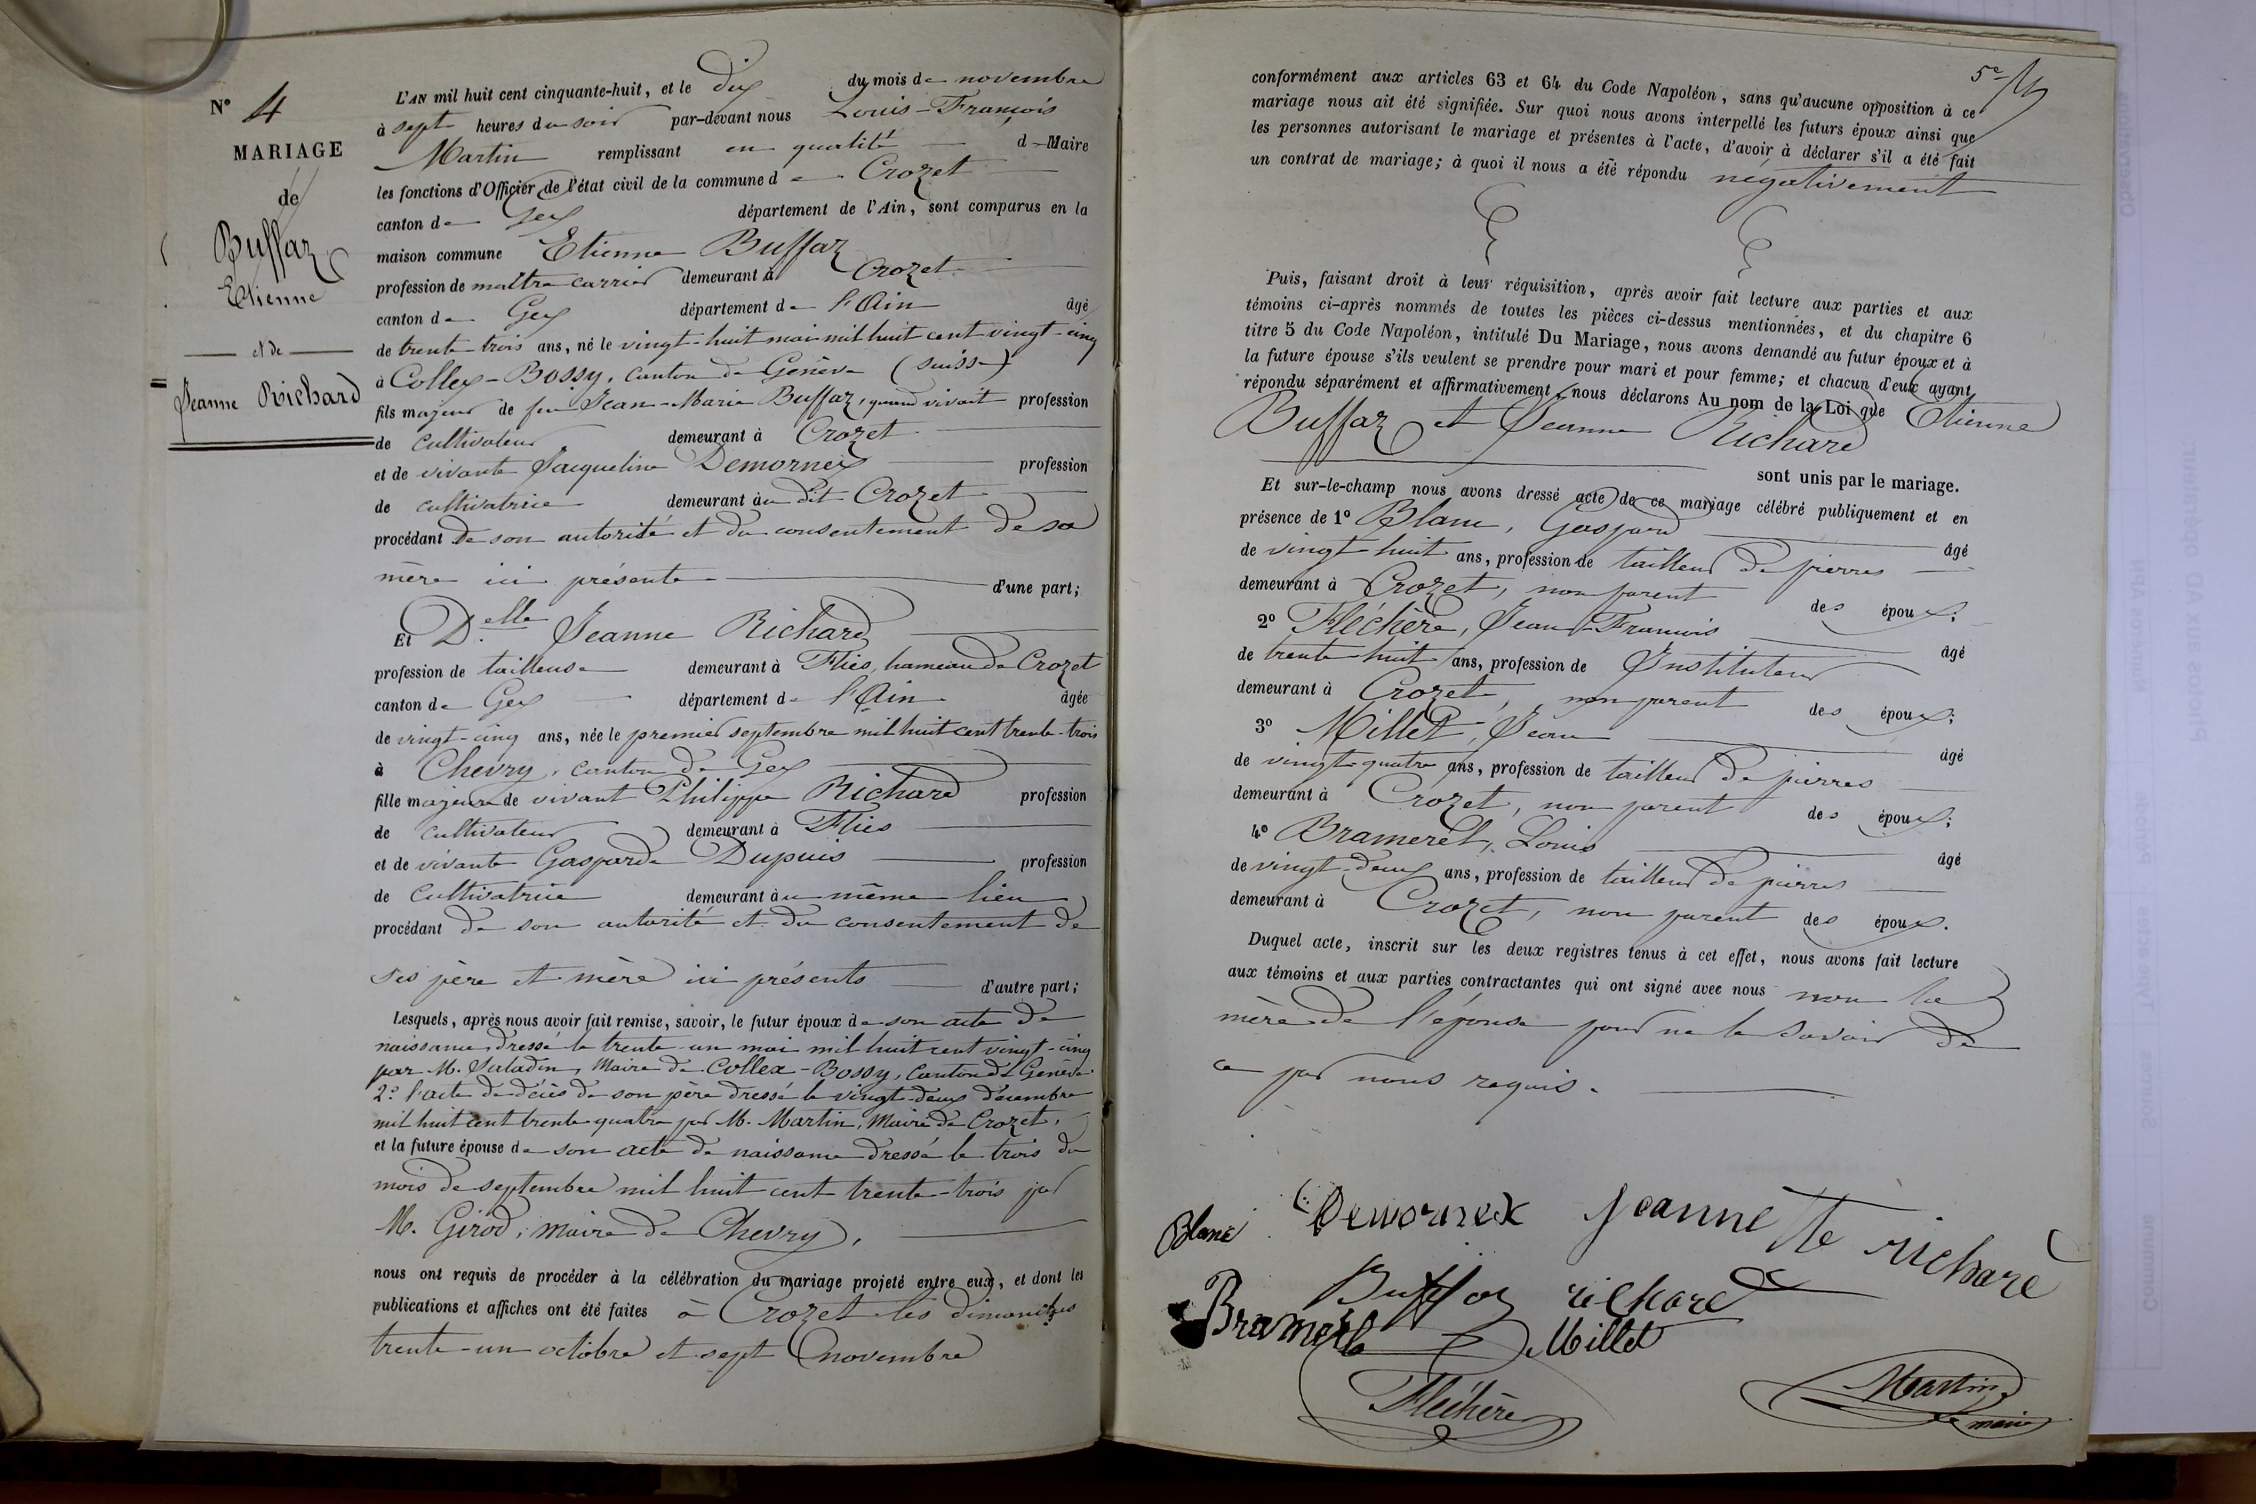 N° 4
MARIAGE
de
Buffaz
Etienne
et de
Jeanne Richard
L'AN mil huit cent cinquante-huit, et le dix du mois de novembre
à sept heures du soir par-devant nous Louis-François
Martin remplissant en qualité d Maire
les fonctions d'Officier de l'état civil de la commune de Crozet
canton de Gex département de l'Ain, sont comparus en la
maison commune Etienne Buffaz
profession de maître carrier demeurant à Crozet
canton de Gex département de l'Ain âgé
de trente trois ans, né le vingt-huit mai mil huit cent vingt-cinq
à Collex-Bossy, canton de Genève (suisse)
fils majeur de feu Jean-Marie Buffaz, quand vivait profession
de cultivateur demeurant à Crozet
et de vivante Jacqueline Demornex profession
de cultivatrice demeurant au dit Crozet
procédant de son autorité et du consentement de sa
mère ici présente d'une part;
Et D.elle Jeanne Richard
profession de tailleuse demeurant à Flies, hameau de Crozet
canton de Gex département de l'Ain âgée
de vingt-cinq ans, née le premier septembre mil huit cent trente-trois
à Chevry, canton de Gex
fille majeure de vivant Philippe Richard profession
de cultivateur demeurant à Flies
et de vivante Gasparde Dupuis profession
de cultivatrice demeurant au même lieu
procédant de son autorité et du consentement de
ses père et mère ici présents d'autre part;
Lesquels, après nous avoir fait remise, savoir, le futur époux de son acte de
naissance dressé le trente-un mai mil huit cent vingt-cinq
par M. Saladin, Maire de Collex-Bossy, canton de Genève
2° l'acte de décès de son père dressé le vingt-deux décembre
mil huit cent trente quatre par M. Martin, Maire de Crozet,
et la future épouse de son acte de naissance dressé le trois du
mois de septembre mil huit cent trente-trois par
M. Girod, maire de Chevry,
nous ont requis de procéder à la célébration du mariage projeté entre eux, et dont les
publications et affiches ont été faites à Crozet les dimanches
trente-un octobre et sept novembre
5e
conformément aux articles 63 et 64 du Code Napoléon, sans qu'aucune opposition à ce
mariage nous ait été signifiée. Sur quoi nous avons interpellé les futurs époux ainsi que
les personnes autorisant le mariage et présentes à l'acte, d'avoir à déclarer s'il a été fait
un contrat de mariage; à quoi il nous a été répondu négativement
Puis, faisant droit à leur réquisition, après avoir fait lecture aux parties et aux
témoins ci-après nommés de toutes les pièces ci-dessus mentionnées, et du chapitre 6
titre 5 du Code Napoléon, intitulé Du Mariage, nous avons demandé au futur époux et à
la future épouse s'ils veulent se prendre pour mari et pour femme; et chacun d'eux ayant
répondu séparément et affirmativement, nous déclarons Au nom de la Loi que Etienne
Buffaz et Jeanne Richard
sont unis par le mariage.
Et sur-le-champ nous avons dressé acte de ce mariage célébré publiquement et en
présence de 1° Blanc, Gaspard âgé
de vingt huit ans, profession de tailleur de pierres
demeurant à Crozet, non parent des époux;
2° Fléchère, Jean-François âgé
de trente-huit ans, profession de Instituteur
demeurant à Crozet, non parent des époux;
3° Millet, Jean âgé
de vingt-quatre ans, profession de tailleur de pierres
demeurant à Crozet, non parent des époux;
4° Bramerel, Louis âgé
de vingt-deux ans, profession de tailleur de pierres
demeurant à Crozet, non parent des époux.
Duquel acte, inscrit sur les deux registres tenus à cet effet, nous avons fait lecture
aux témoins et aux parties contractantes qui ont signé avec nous non la
mère de l'épouse pour ne le savoir de
ce par nous requis.
Blanc Demornex Jeannette richard
Buffaz richard
Bramerel Millet
Fléchère
Martin
maire